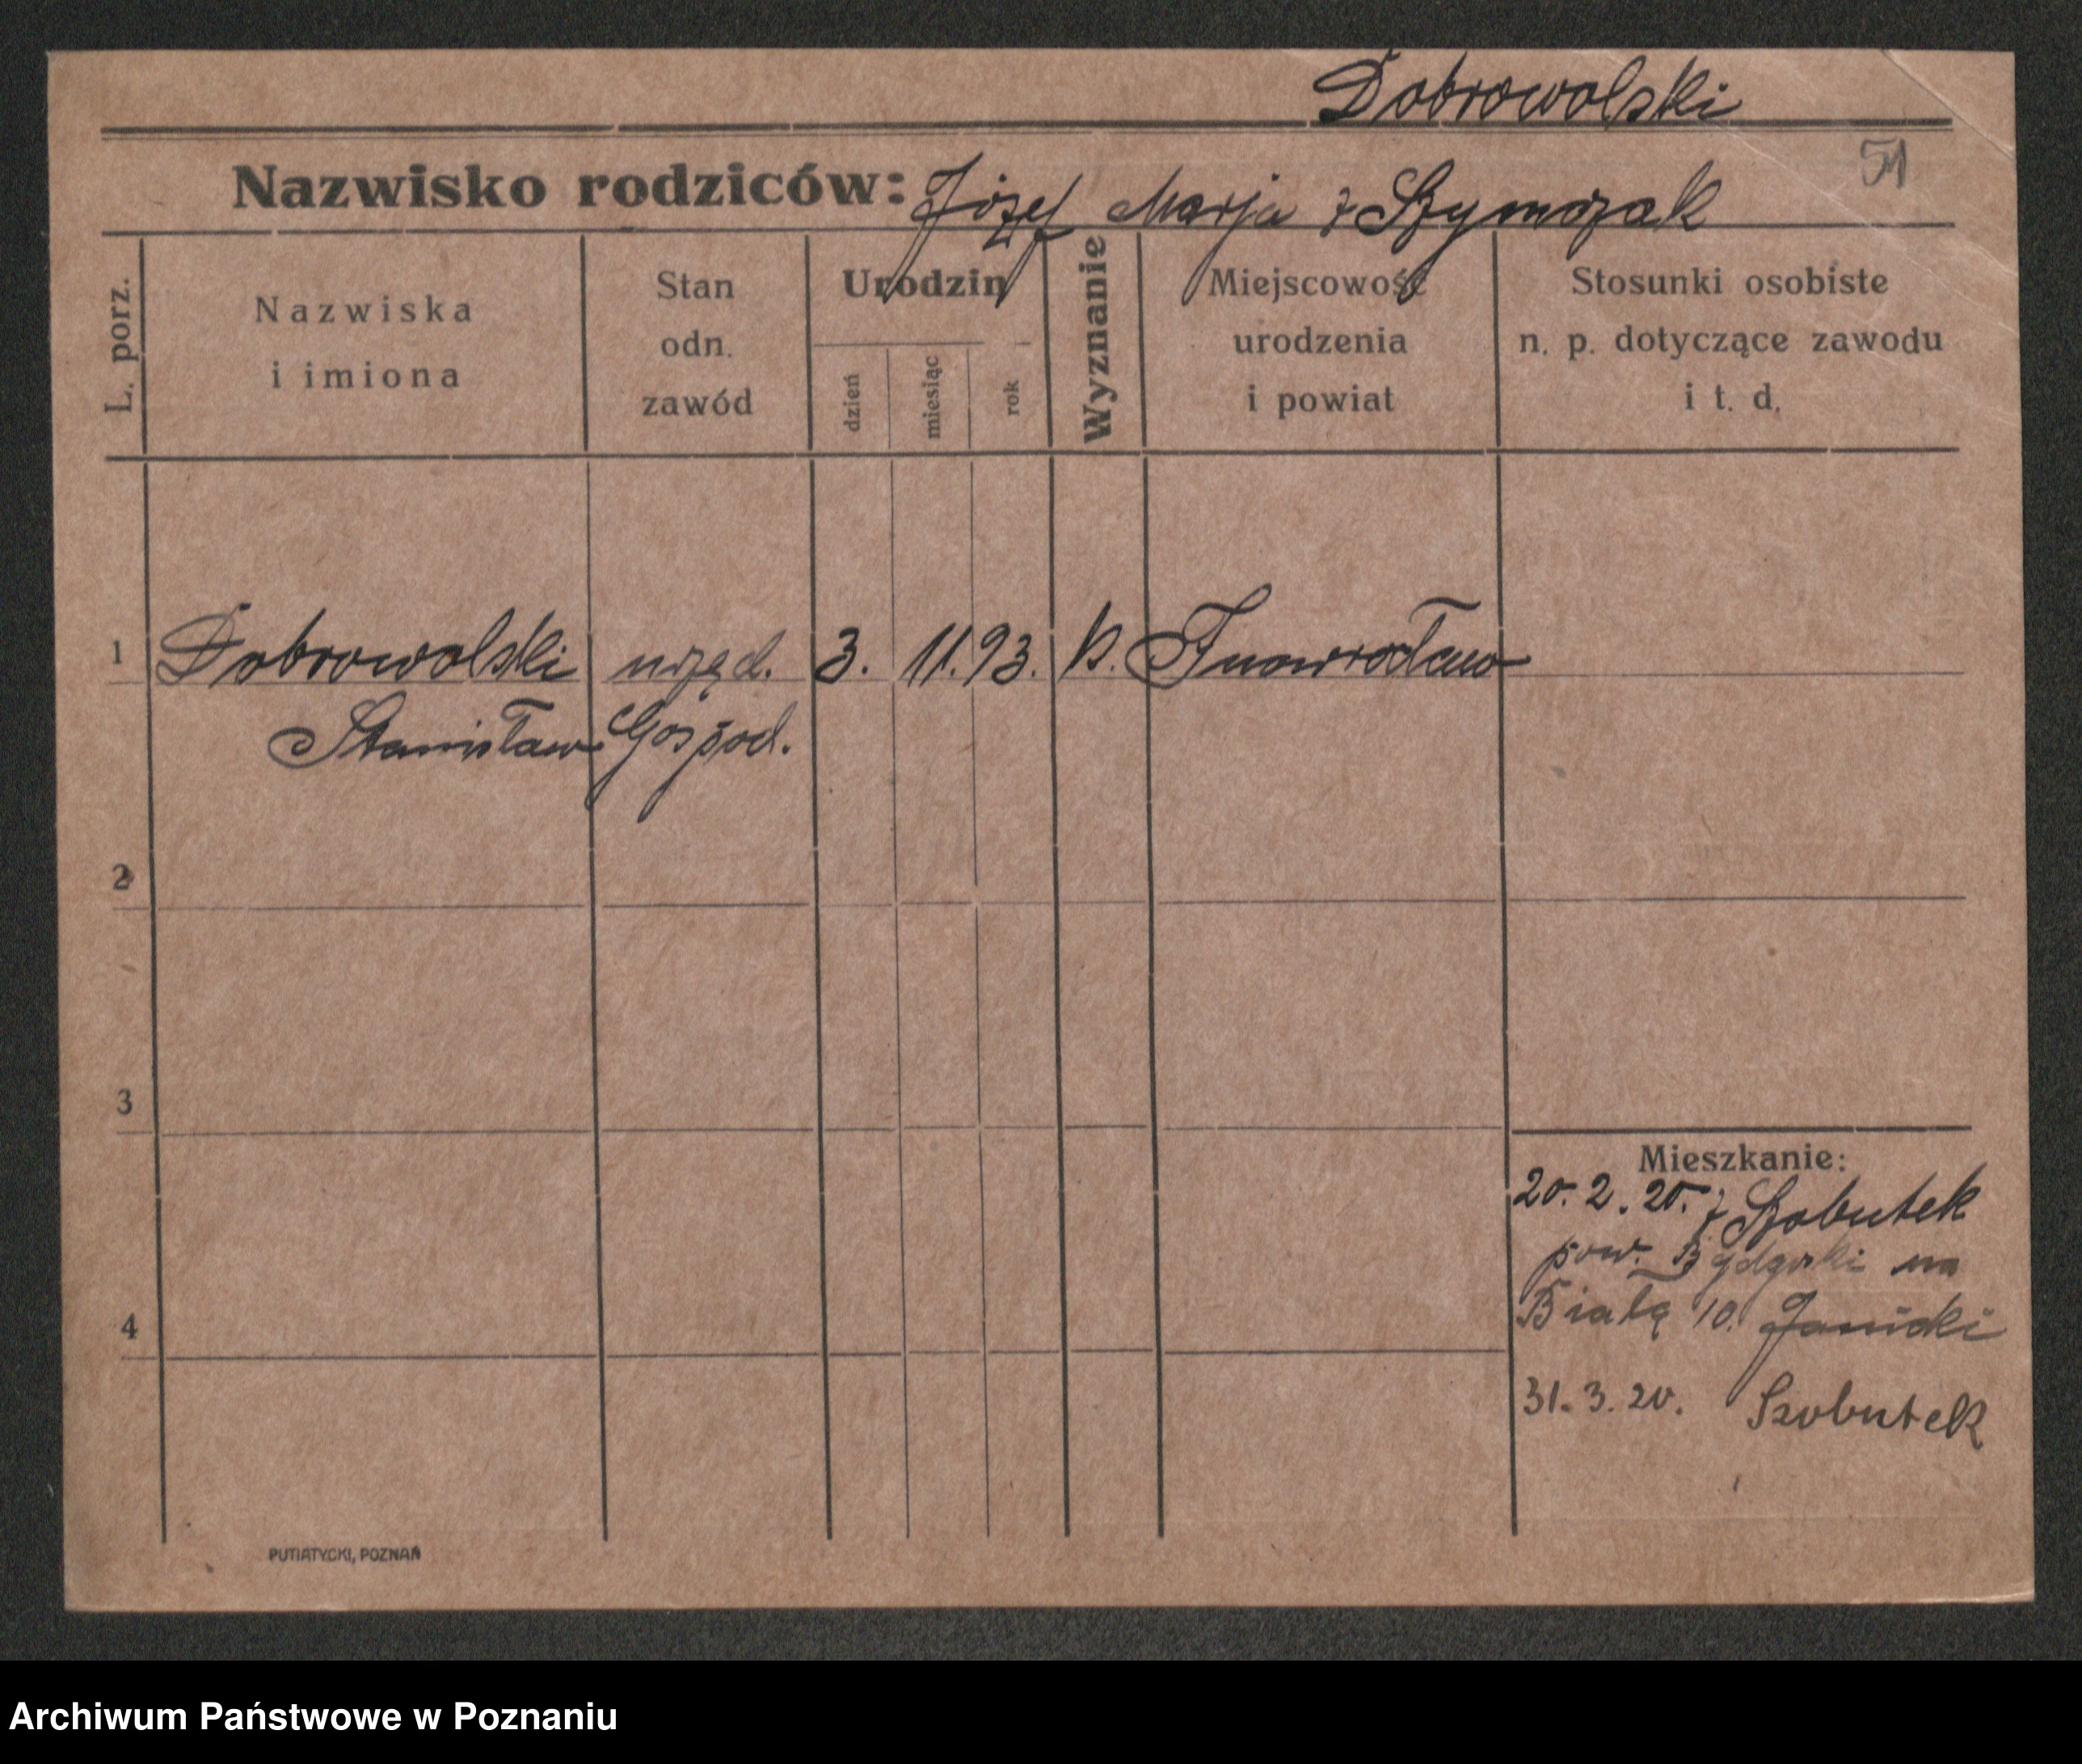 Dobrowolski
51
Nazwisko rodziców: Józef Marja z Szymczak
L. porz.
Nazwiska
i imiona
Stan
odn.
zawód
Urodzin
dzień
miesiąc
rok
Wyznanie
Miejscowość
urodzenia
i powiat
Stosunki osobiste
n. p. dotyczące zawodu
i t. d.
1 Dobrowolski urzęd. 3. 11. 93. k. Inowrocław
Stanisław Gospod.
2
3
Mieszkanie:
20. 2. 20. z Szobutek
pow. Bydgoski na
4 Białą 10. Janicki
31. 3. 20. Szobutek
PUTIATYCKI, POZNAŃ
Archiwum Państwowe w Poznaniu